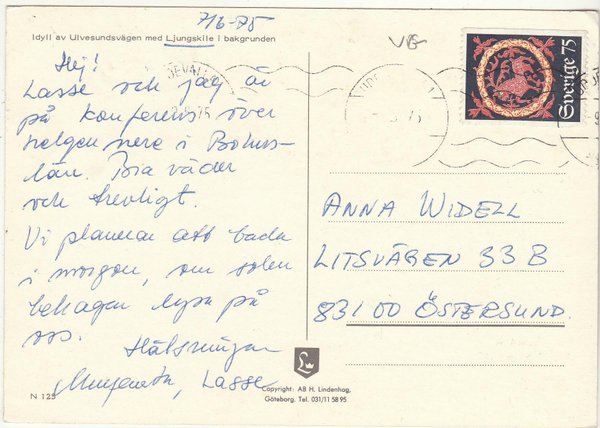 7/6-75
Idyll av Ulvesundsvägen med Ljungskile i bakgrunden
VB
Sverige 75
Hej!
Lasse och jag är
på konferens över
helgen nere i Bohus-
län. Bra väder
och trevligt.
Vi planerar att bada
i morgon, om solen
behagar lysa på
oss.
Hälsningar
Margareta, Lasse
ANNA WIDELL
LITSVÄGEN 33 B
831 00 ÖSTERSUND.
N 125
Copyright: AB H. Lindenhag,
Göteborg. Tel. 031/11 58 95